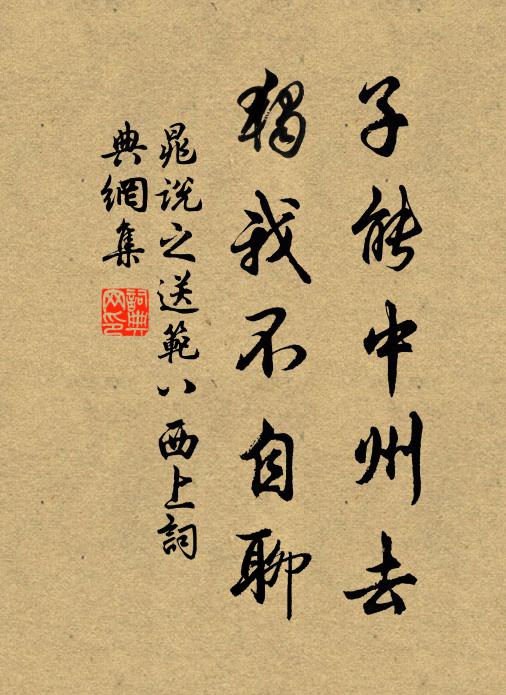 子能中州去
獨我不自聊
晁說之送範八西上詞
典網集
詞典網印